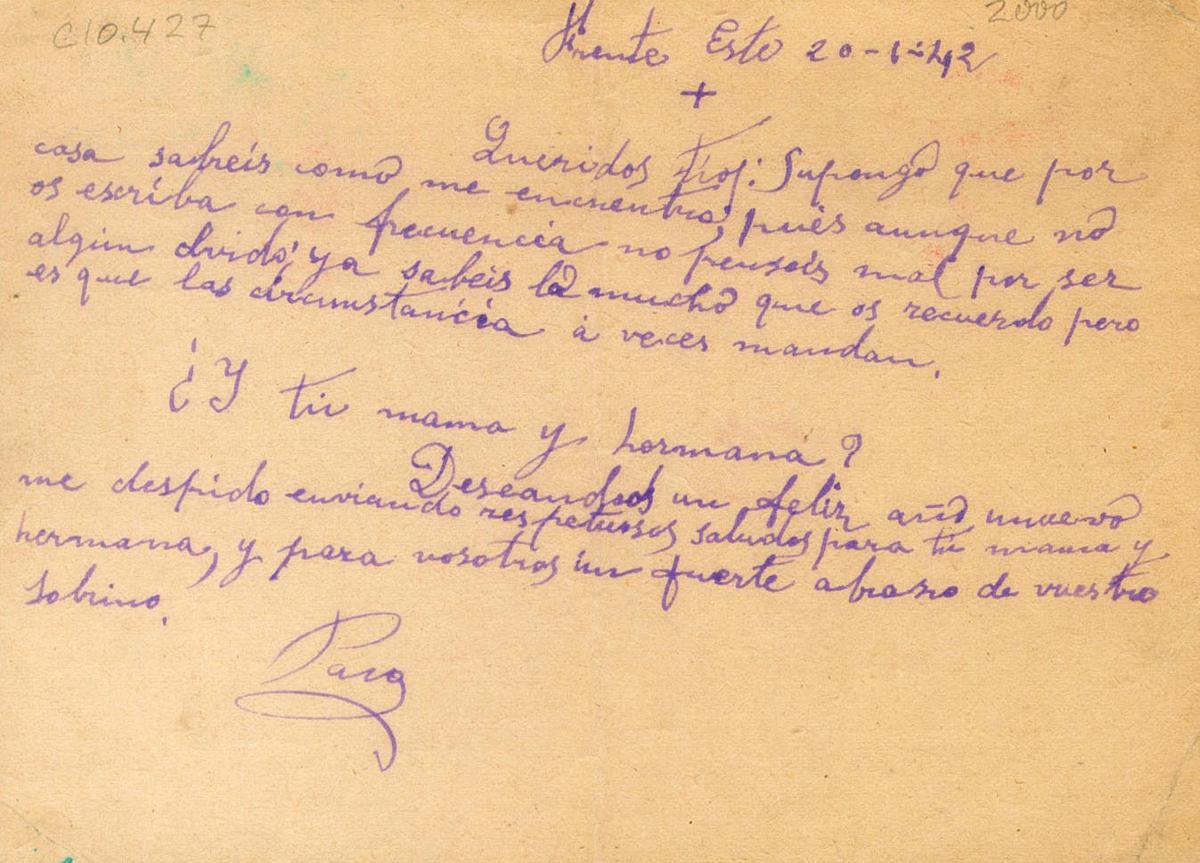 C10.427
2000
Frente Este 20-1-42
+
Queridos tios: Supongo que por
casa sabreis como me encuentro; pués aunque no
os escriba con frecuencia no penseis mal por ser
algun olvido; ya sabeis lo mucho que os recuerdo pero
es que las circunstancia á veces mandan.
¿Y tu mama y hermana?
Deseandoos un feliz año nuevo
me despido enviando respetuosos saludos para tu mama y
hermana, y para vosotros un fuerte abrazo de vuestro
sobrino.
Paco